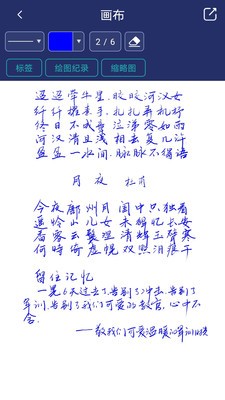 画布
2 / 6
标签
绘图纪录
缩略图
迢迢牵牛星,皎皎河汉女
纤纤擢素手,扎扎弄机杼
终日不成章 泣涕零如雨
河汉清且浅 相去复几许
盈盈一水间,脉脉不得语
月夜 杜甫
今夜鄜州月 闺中只独看
遥怜小儿女 未解忆长安
香雾云鬟湿 清辉玉臂寒
何时倚虚幌 双照泪痕干
留住记忆
一晃6天过去了,告别了冲击,告别了
军训,告别了我们可爱的教官,心中不
舍。
——致我们可爱温暖的军训